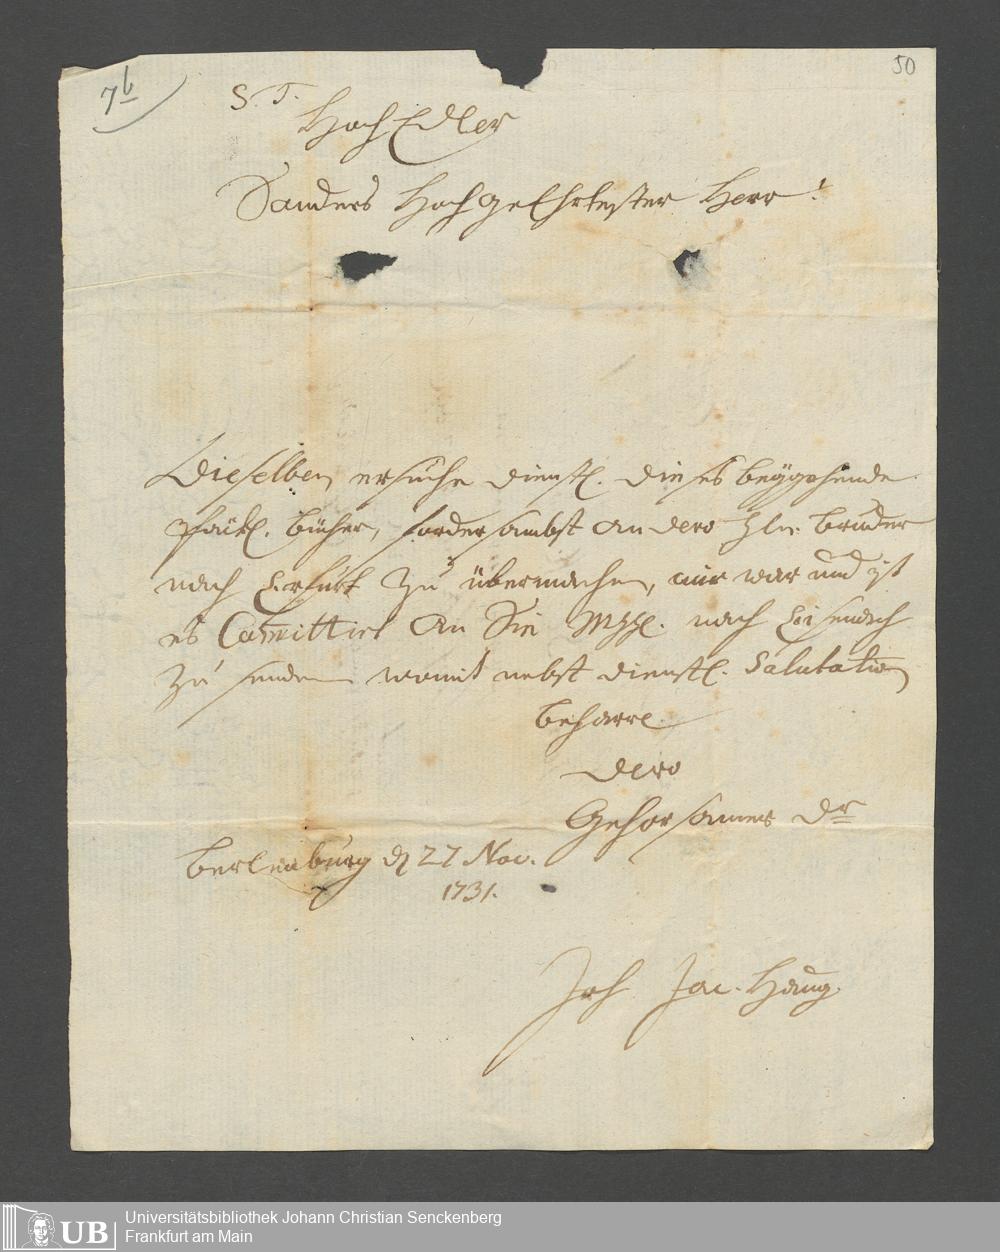 7b
50
S. T.
HochEdler
Sonders HochgeEhrtester Herr!
Dieselben ersuche dienstl. dieses beÿgehende
Päckl. bücher, fordersambst an dero Hln. bruder
nach Erfurt zu übermachen, mir war und ist
es Com̄ittirt an Sie nach Eisenach
zu senden womit nebst dienstl. Salutation
beharre
dero
Gehorsamer Dr
berlenburg d 27 Nov.
1731.
Joh Jac. Haug.
UB
Universitätsbibliothek Johann Christian Senckenberg
Frankfurt am Main